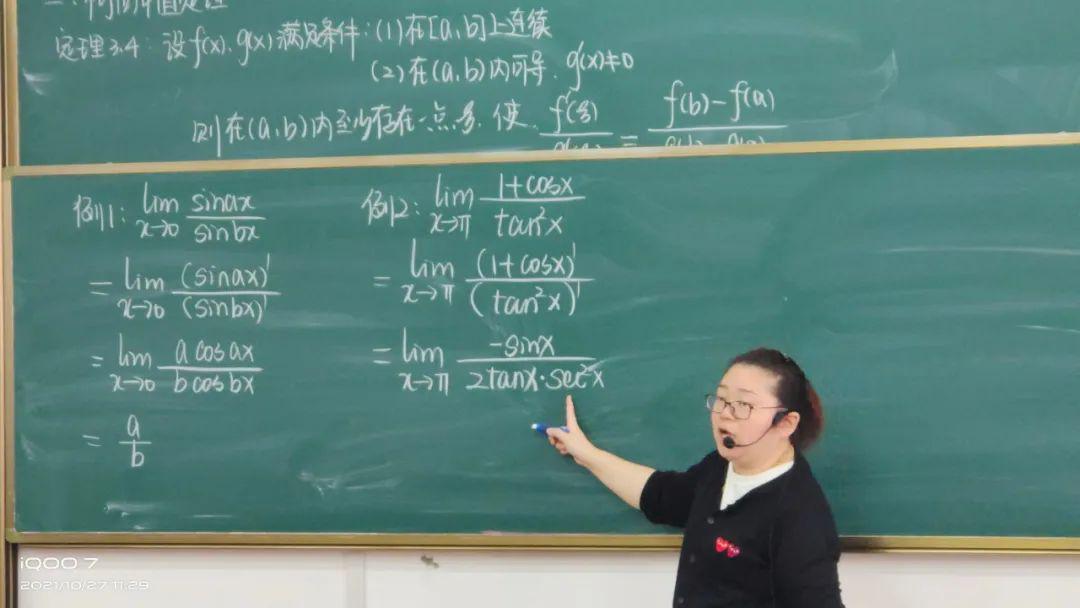 定理3.4：设f(x)、g(x)满足条件：(1)在[a,b]上连续
(2)在(a,b)内可导、g'(x)≠0
则在(a,b)内至少存在一点ξ，使 f'(ξ)/ = (f(b)-f(a))/
例1：lim x→0 sinax/sinbx
= lim x→0 (sinax)'/(sinbx)'
= lim x→0 acosax/bcosbx
= a/b
例2：lim x→π (1+cosx)/tan²x
= lim x→π (1+cosx)'/(tan²x)'
= lim x→π -sinx/2tanx·sec²x
iQOO 7
2021/10/27 11:29